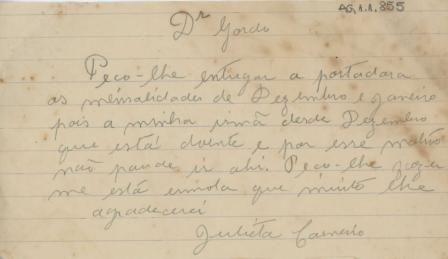 AG.1.1.855
Dr Gordo
Peço-lhe entregar a portadora
as mensalidades de Dezembro e Janeiro
pois a minha irmã desde Dezembro
que está doente e por esse motivo
não poude ir ahi. Peco-lhe fazer
me está esmola que muito lhe
agradecerei
Julieta Carneiro